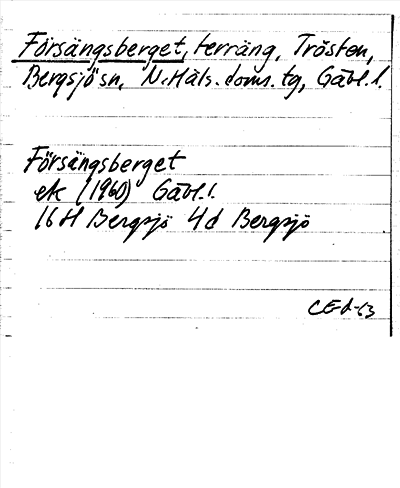 Försängsberget, terräng, Trösten,
Bergsjö sn, N.Häls. doms. tg, Gävl.l.
Försängsberget
ek (1960) Gävl.l.
16H Bergsjö 4d Bergsjö